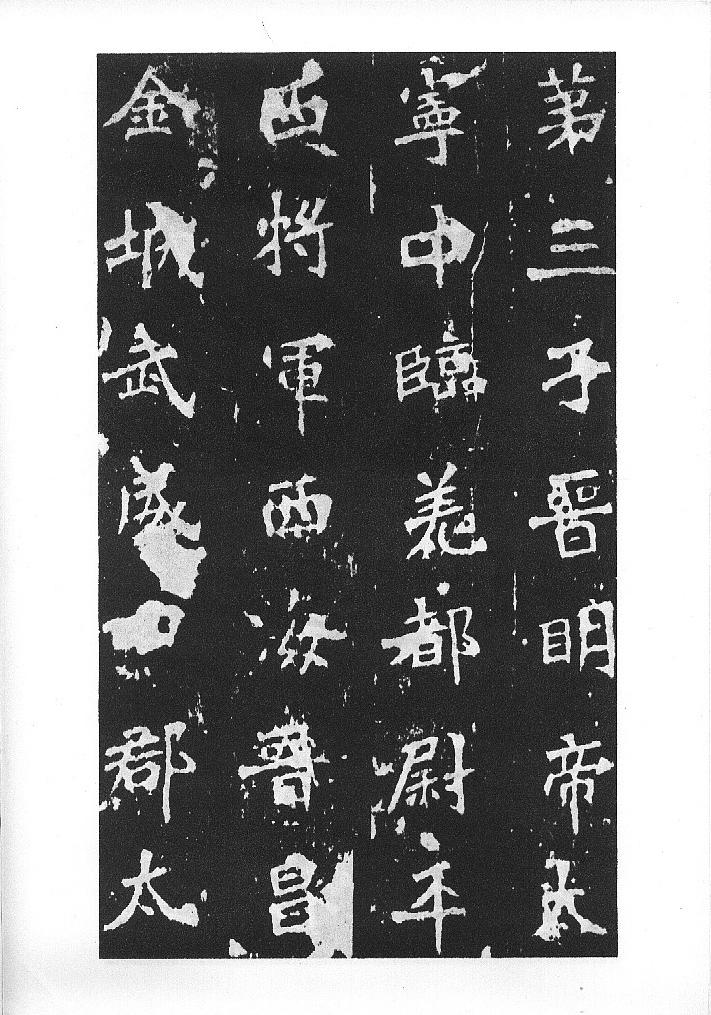 第三子晉明帝太
寧中臨羌都尉平
西將軍西海晉昌
金城武威郡太